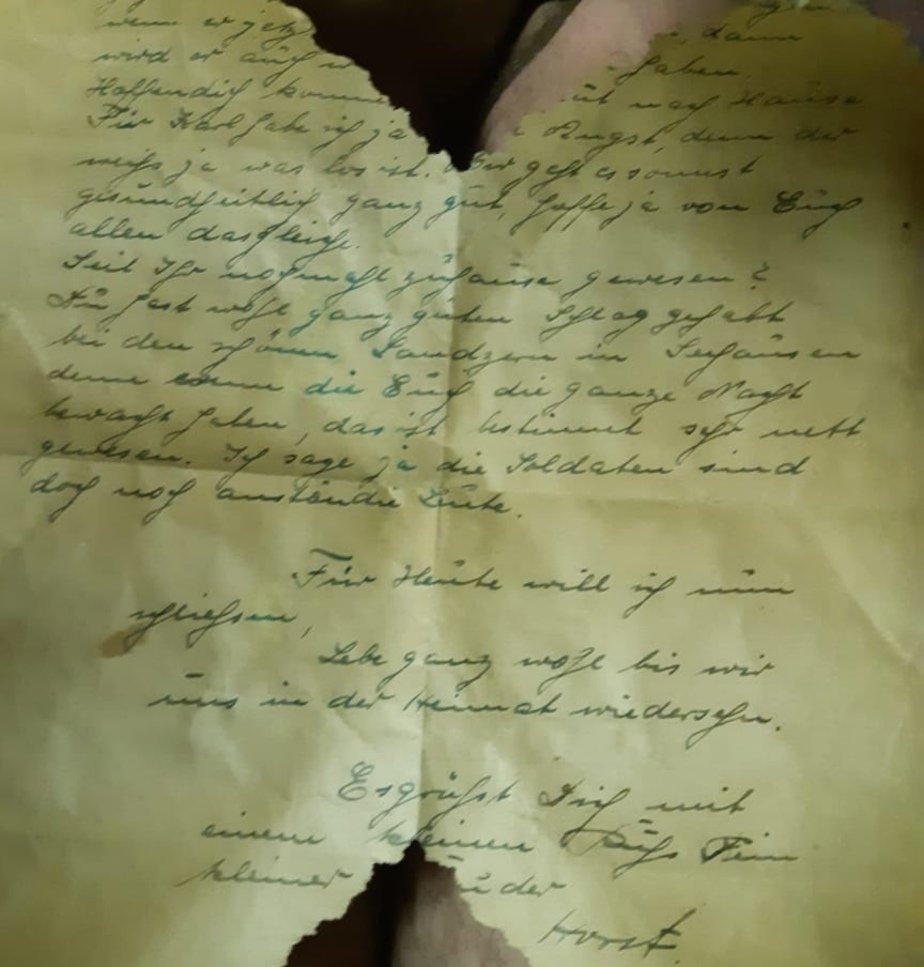 wenn er jetz
, dann
wird er auch
haben.
Hoffendlich komm
üt nach Hause
Für Karl habe ich ja
Angst, denn der
weiß ja was los ist. Mir geht es sonnst
gesundheitlich ganz gut, hoffe ja von Euch
allen dasgleiche.
Seit Ihr nochmahl zuhause gewesen?
Du hast wohl ganz guten Schlag gehabt
bei den schönen Landzern in Seehausen
denn wenn die Euch die ganze Nacht
bewacht haben, das ist bestimmt sehr nett
gewesen. Ich sage ja die Soldaten sind
doch noch anständie Leute.
Für Heute will ich nun
schließen,
Lebe ganz wohl bis wir
uns in der Heimat wiedersehn.
Es grüßt Dich mit
einem kleinen Kuß Dein
kleiner uder
Horst.